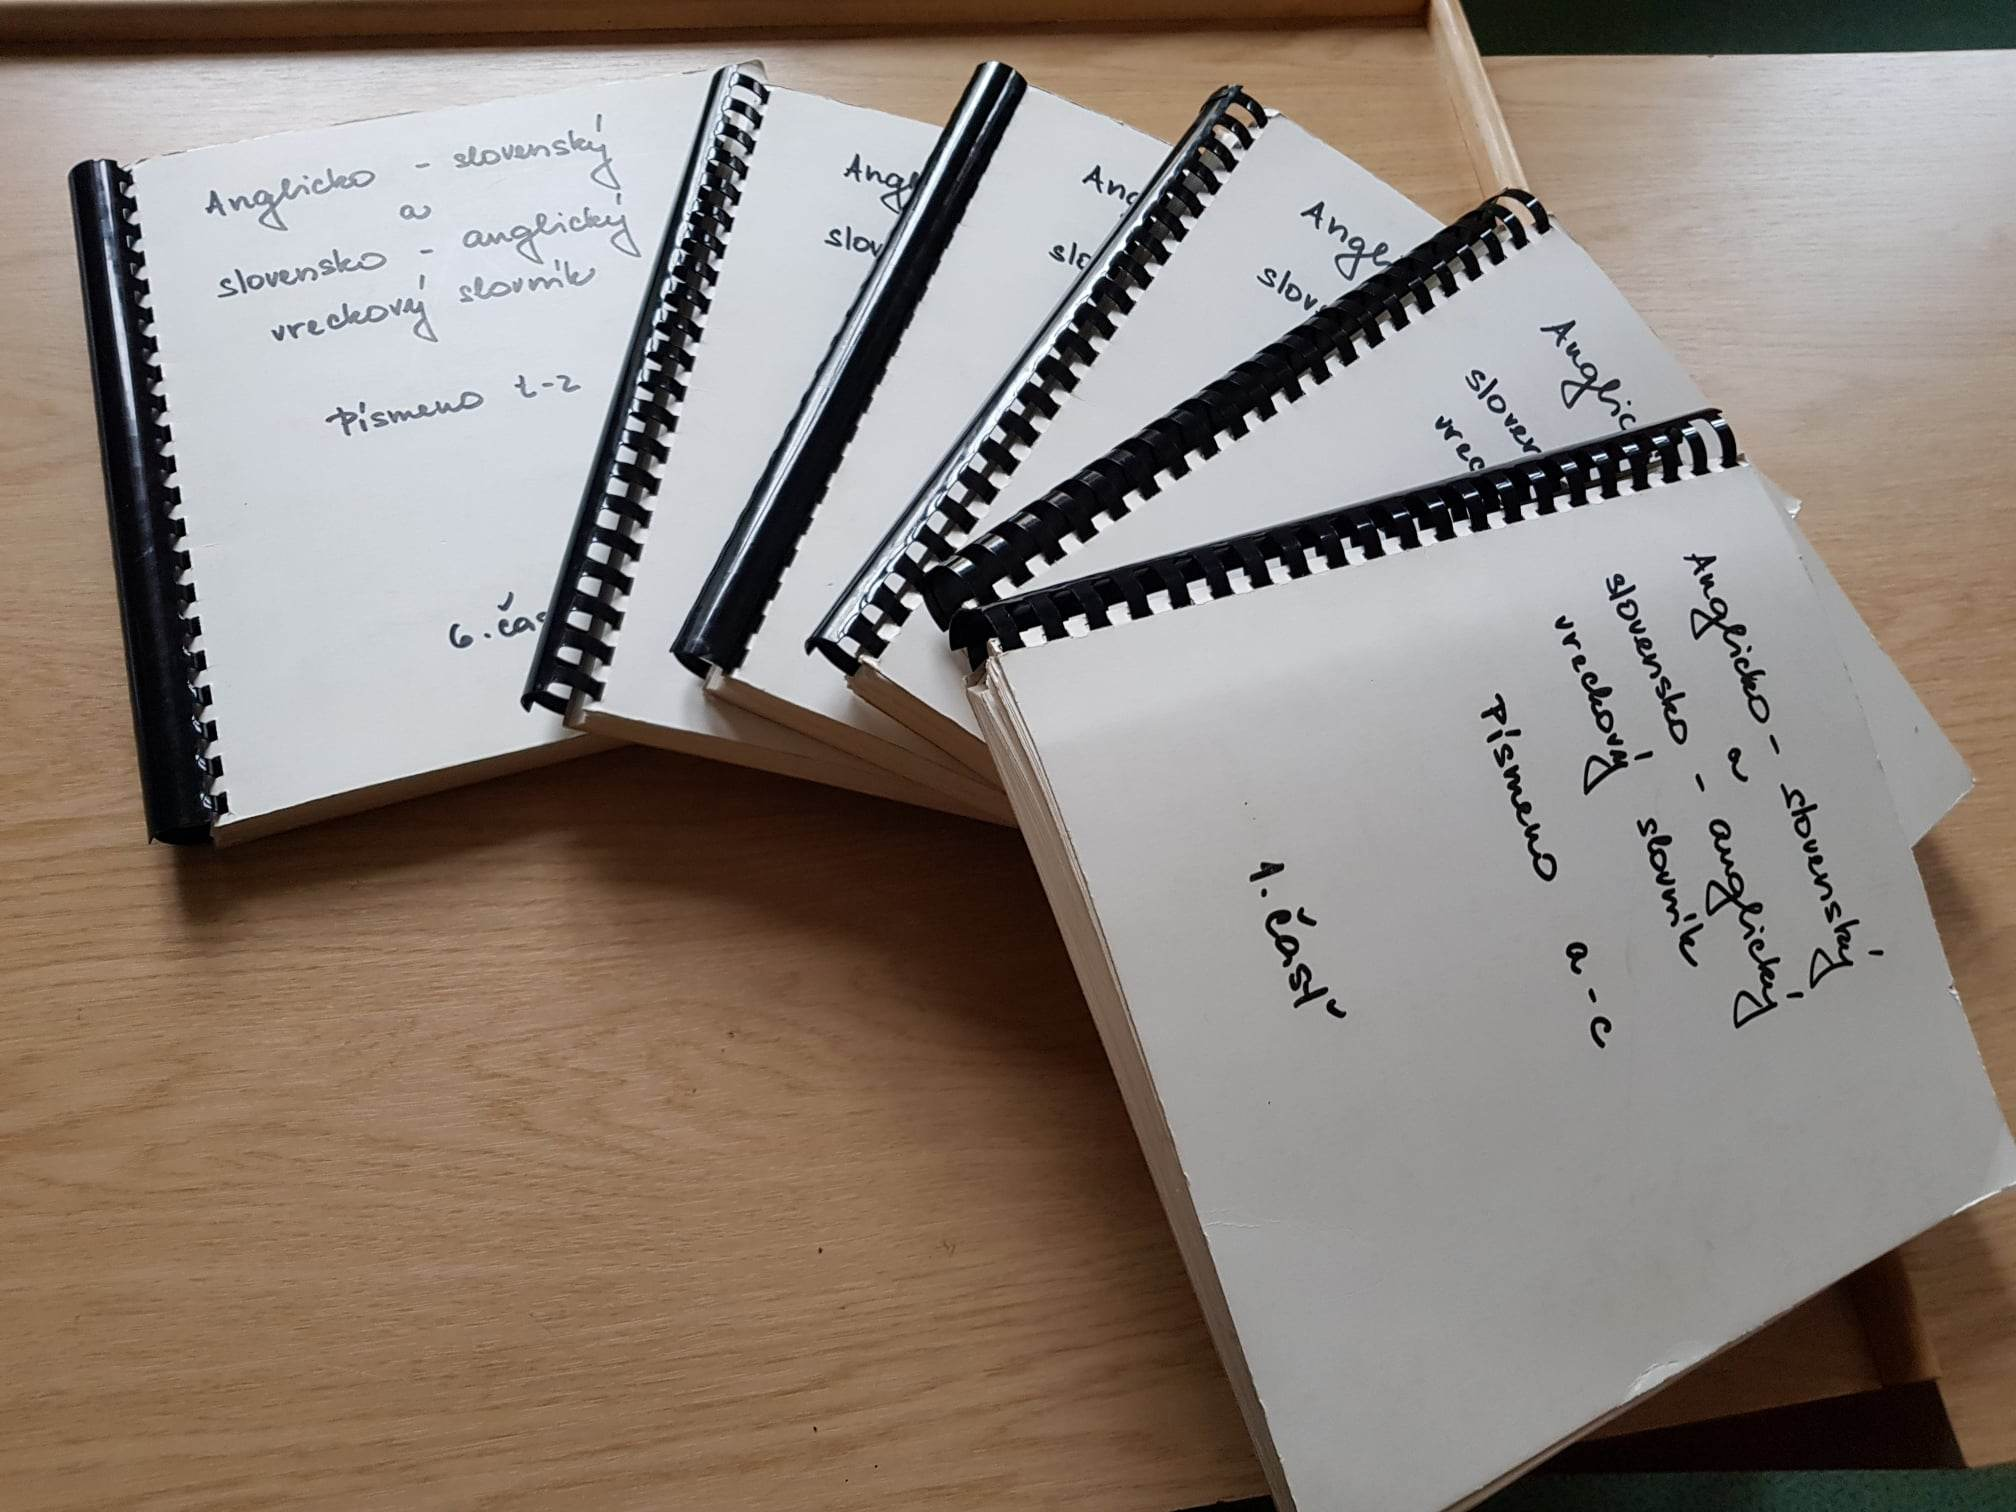 Anglicko - slovenský
a
slovensko - anglický
vreckový slovník
Písmeno t-z
6. čas
Ang
slov
Ang
slo
Angl
slov
Anglic
sloven
vrec
Anglicko - slovenský
a
slovensko - anglický
vreckový slovník
Písmeno a-c
1. časť